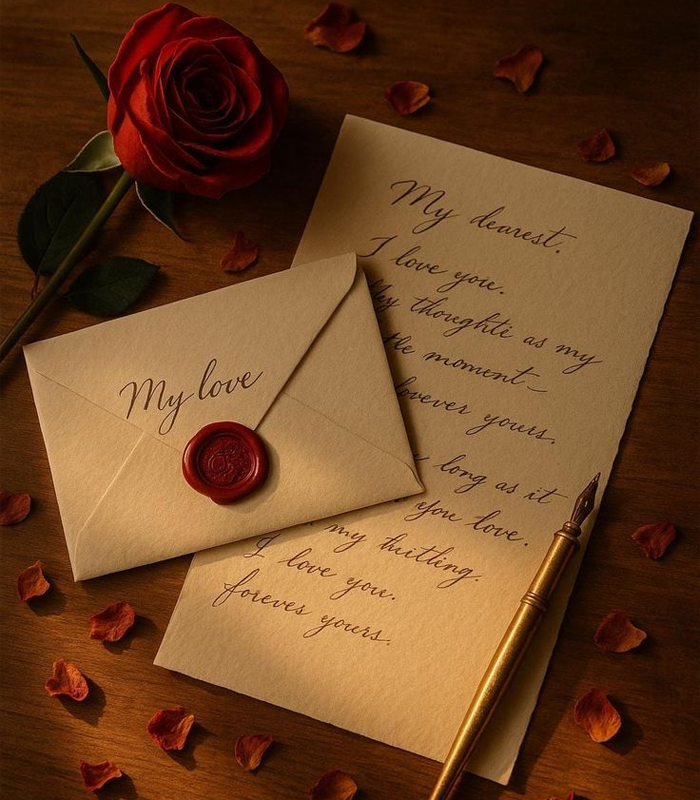 My dearest.
I love you.
My thoughte as my
the moment–
lovever yours.
long as it
you love.
my huitling.
I love you.
foreves yours.
My love